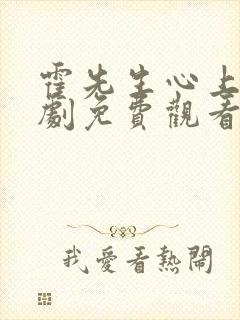 霍先生心上
劇免費觀看
我愛看熱鬧